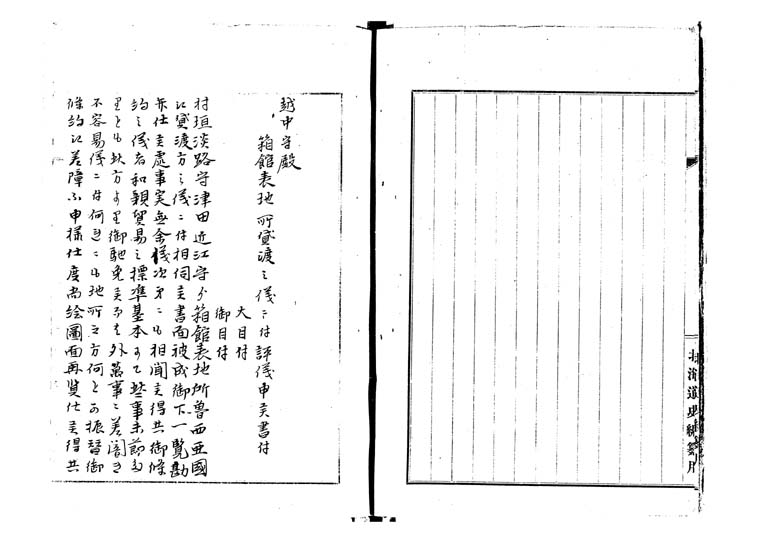 北海道史編纂用
越中守殿
箱館表地所貸渡之儀ニ付評儀申上書付
大目付
御目付
村垣淡路守津田近江守ゟ箱館表地所魯西亜国
江貸渡方之儀ニ付相伺候書面被成御下一覧勘
弁仕候処事実無余儀次第ニも相聞候得共御条
約之儀者和親貿易之標準基本ニて些事末節
里とも此方より御馳免候而者外萬事ニ差響き
不容易儀ニ付何れニも地所之方何と可振替御
條約江差障不申様仕度尚絵圖面再覧仕候得共